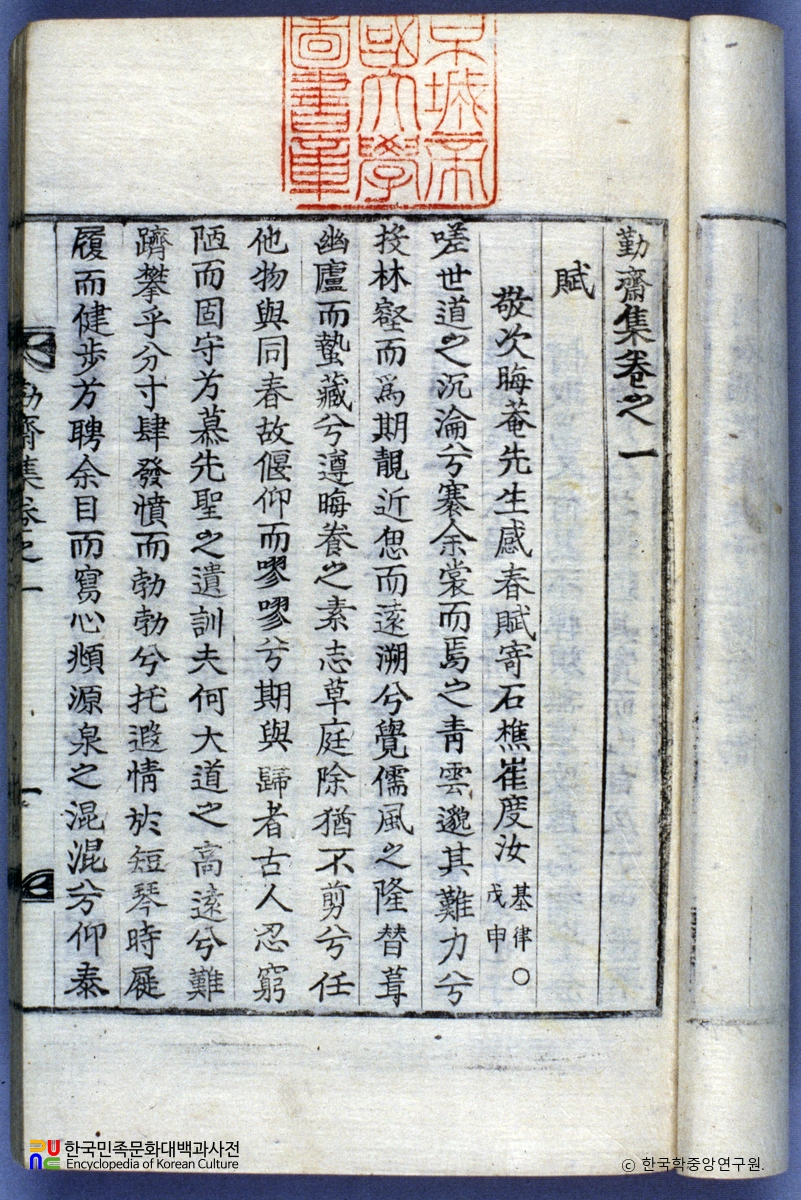 京城帝
國大學
圖書章
勤齋集卷之一
賦
敬次晦菴先生感春賦寄石樵崔度汝 基律 戊申 ○
嗟世道之沉淪兮褰余裳而焉之靑雲邈其難力兮
投林壑而爲期靚近思而遠溯兮覺儒風之隆替葺
幽廬而蟄藏兮遵晦養之素志草庭除猶不剪兮任
他物與同春故偃仰而嘐嘐兮期與歸者古人忍窮
陋而固守方慕先聖之遺訓夫何大道之高遠兮難
躋攀乎分寸肆發憤而勃勃兮托遐情於短琴時屣
履而健步方聘余目而寫心頫源泉之混混兮仰泰
勤齋集卷之一
一
한국민족문화대백과사전
Encyclopedia of Korean Culture
© 한국학중앙연구원.